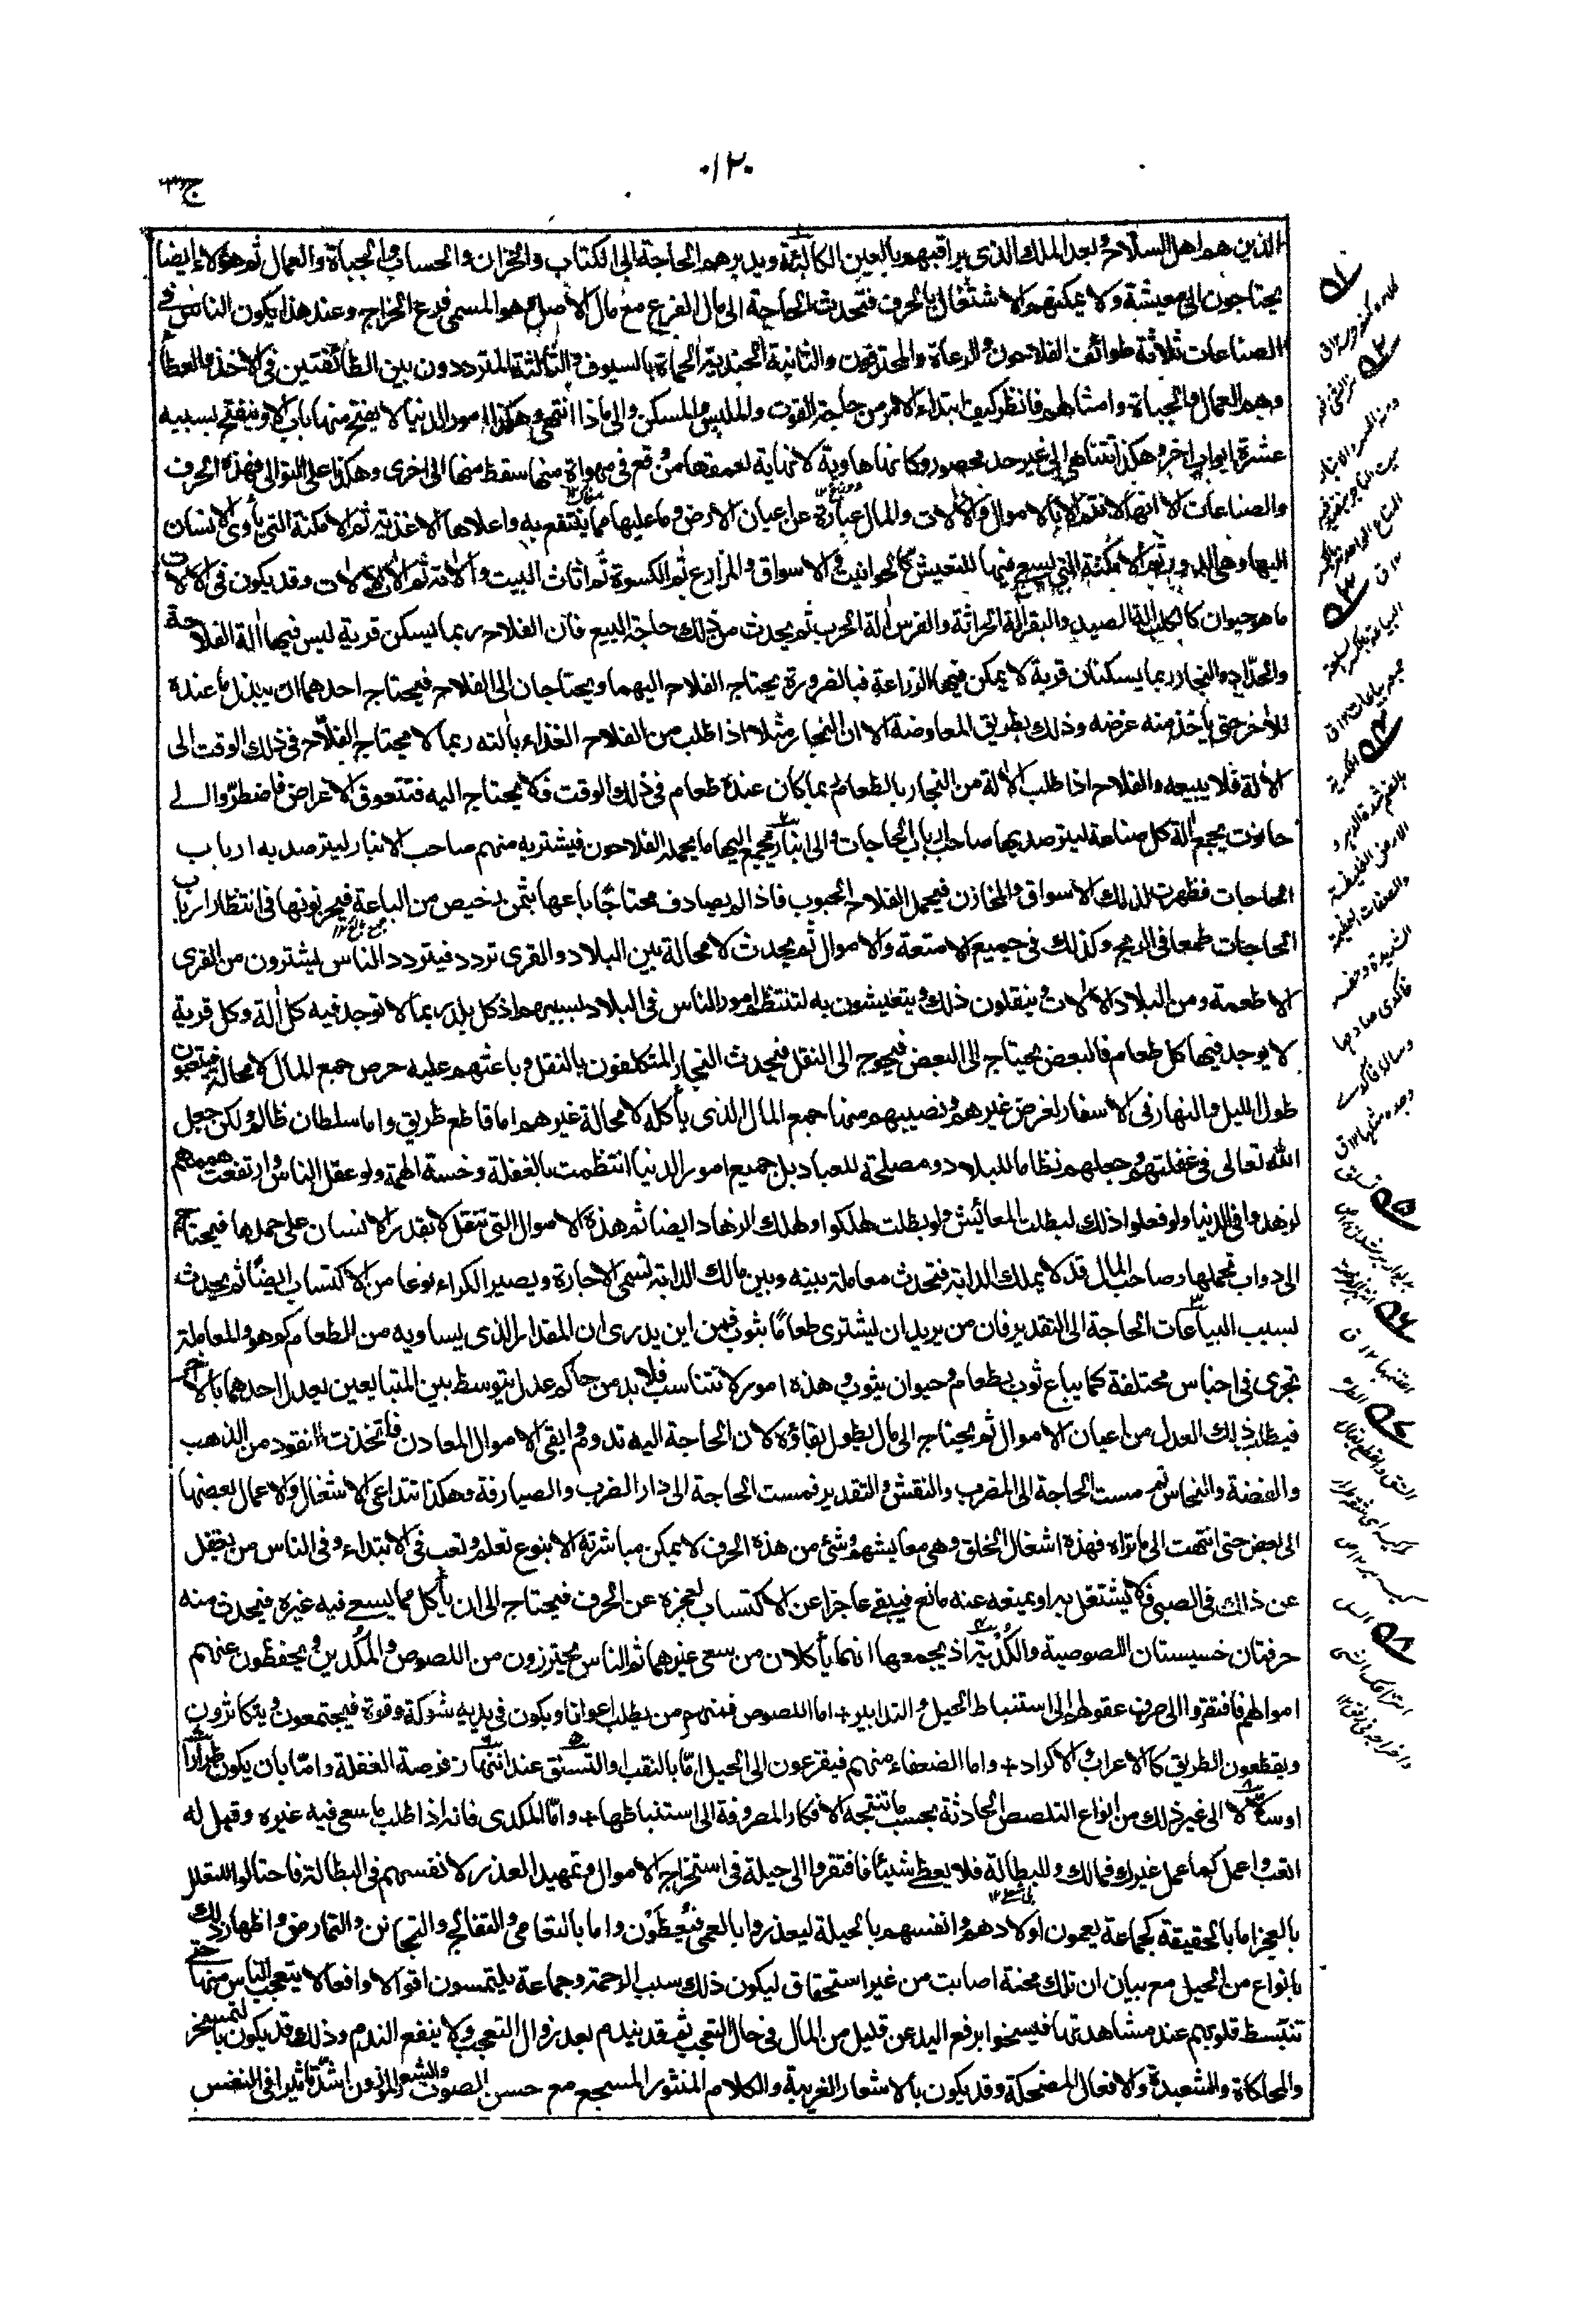 ١٢٠
ج ٣
الذين هم اهل السلاح وبعد الملك الذى يراقبهم بالعين الكالئة ويدبرهم الحاجة الى الكتاب والخزان والحساب والجباة والعمال ثم هؤلاء ايضا
يحتاجون الى معيشة ولا يمكنهم الاشتغال بالحرف فتحدث الحاجة الى مال الفرع مع مال الاصل وهو المسمى فرع الخراج وعند هذا يكون الناس فى
الصناعات ثلاثة طوائف الفلاحون والرعاة والمحترفون والثانية الجندية الحماة بالسيوف والثالثة المترددون بين الطائفتين فى الاخذ والعطاء
وهم العمال والجباة وامثالهم فانظر كيف ابتداء الامر من حاجة القوت والملبس والمسكن والى ماذا انتهى وهكذا امور الدنيا لا يفتح منها باب الا وينفتح بسببه
عشرة ابواب اخر وهكذا تتناهى الى غير حد محصور وكانها هاوية لا نهاية لعمقها من وقع فى مهواة منها سقط منها الى اخرى وهكذا على التوالى فهذه الحرف
والصناعات الا انها لا تتم الا بالاموال والالات والمال عبارة عن اعيان الارض وما عليها مما ينتفع به واعلاها الاغذية ثم الامكنة التى يأوى الانسان
اليها وهى الدور ثم الامكنة التى يسعى فيها للتعيش كالحوانيت والاسواق والمزارع ثم الكسوة ثم اثاث البيت والاته ثم الات الالات وقد يكون فى الالات
ما هو حيوان كالكلب الة الصيد والبقر الة الحراثة والفرس الة الحرب ثم يحدث من ذلك حاجة البيع فان الفلاح ربما يسكن قرية ليس فيها الة الفلاحة
والحدّاد والنجار ربما يسكنان قرية لا يمكن فيها الزراعة فبالضرورة يحتاج الفلاح اليهما ويحتاجان الى الفلاح فيحتاج احدهما ان يبذل ما عنده
للأخر حتى يأخذ منه غرضه وذلك بطريق المعاوضة الا ان النجار مثلا اذا طلب من الفلاح الغذاء بالته ربما لا يحتاج الفلاح فى ذلك الوقت الى
الالة فلا يبيعه والفلاح اذا طلب الالة من النجار بالطعام ربما كان عنده طعام فى ذلك الوقت فلا يحتاج اليه فتتعوق الاغراض فاضطرّوا الى
حانوت يجمع الة كل صناعة ليترصد بها صاحبها ارباب الحاجات والى انبار يجمع اليها ما يحمله الفلاحون فيشتريه منهم صاحب الانبار ليترصد به ارباب
الحاجات فظهرت لذلك الاسواق والمخازن فيحمل الفلاح الحبوب فاذا لم يصادف محتاجًا باعها بثمن رخيص من الباعة فيخزنونها فى انتظار ارباب
الحاجات طمعا فى الربح وكذلك فى جميع الامتعة والاموال ثم يحدث لا محالة بين البلاد والقرى تردد فيتردد الناس يشترون من القرى
الاطعمة ومن البلاد الالات وينقلون ذلك ويتعيشون به لتنتظم امور الناس فى البلاد بسببهم اذ كل بلد ربما لا توجد فيه كل الة وكل قرية
لا يوجد فيها كل طعام فالبعض يحتاج الى البعض فيحوج الى النقل فيحدث التجار المتكلفون بالنقل وباعثهم عليه حرص جمع المال لا محالة فيتعبون
طول الليل والنهار فى الاسفار لغرض غيرهم ونصيبهم منها جمع المال الذى يأكله لا محالة غيرهم اما قاطع طريق واما سلطان ظالم ولكن جعل
الله تعالى فى غفلتهم وجهلهم نظاما للبلاد ومصلحة للعباد بل جميع امور الدنيا انتظمت بالغفلة وخسة الهمة ولو عقل الناس وارتفعت هممهم
لزهدوا فى الدنيا ولو فعلوا ذلك لبطلت المعائيش ولو بطلت لهلكوا ولهلك الزهاد ايضا ثم هذه الاموال التى تنقل لا يقدر الانسان على حملها فيحتاج
الى دواب تحملها وصاحب المال قد لا يملك الدابة فتحدث معاملة بينه وبين مالك الدابة تسمى الاجارة ويصير الكراء نوعا من الاكتساب ايضًا ثم يحدث
بسبب البياعات الحاجة الى التقدير فان من يريد ان يشترى طعامًا بثوب فمن اين يدرى ان المقدار الذى يساويه من الطعام كم هو والمعاملة
تجرى فى اجناس مختلفة كما يباع ثوب بطعام وحيوان بثوب وهذه امور لا تتناسب فلا بد من حاكم عدل يتوسط بين المتبايعين يعدل احدهما بالاخر
فيطلب ذلك العدل من اعيان الاموال ثم يحتاج الى مال يطول بقاؤه لان الحاجة اليه تدوم وابقى الاموال المعادن فاتخذت النقود من الذهب
والفضة والنحاس ثم مست الحاجة الى الضرب والنقش والتقدير فمست الحاجة الى دار الضرب والصيارفة وهكذا تتداعى الاشغال والاعمال بعضها
الى بعض حتى انتهت الى ما تراه فهذه اشغال الخلق وهى معايشهم وشئ من هذه الحرف لا يمكن مباشرته الا بنوع تعلم وتعب فى الابتداء وفى الناس من يغفل
عن ذلك فى الصبى فلا يشتغل به او يمنعه عنه مانع فيبقى عاجزا عن الاكتساب لعجزه عن الحرف فيحتاج الى ان يأكل مما يسعى فيه غيره فيحدث منه
حرفتان خسيستان اللصوصية والكُدْية اذ يجمعهما انهما يأكلان من سعى غيرهما ثم الناس يحترزون من اللصوص والمُكْدين ويحفظون عنهم
اموالهم فافتقروا الى صرف عقولهم الى استنباط الحيل والتدابير + اما اللصوص فمنهم من يطلب اعوانا ويكون فى يديه شوكة وقوة فيجتمعون ويتكاثرون
ويقطعون الطريق كالاعراب والاكراد + واما الضعفاء منهم فيفزعون الى الحيل امّا بالنقب او التسلق عند انتهاز فرصة الغفلة وامّا بان يكون طرّارا
او سلالا الى غير ذلك من انواع التلصص الحادثة بحسب ما تنتجه الافكار المصروفة الى استنباطها + وامّا المكدى فانه اذا طلب ما سعى فيه غيره وقيل له
اتعب واعمل كما عمل غيرك فمالك وللبطالة فلا يعطى شيئا فافتقروا الى حيلة فى استخراج الاموال وتمهيد العذر لانفسهم فى البطالة فاحتالوا للتعلل
بالعجز اما بالحقيقة كجماعة يعمون اولادهم وانفسهم بالحيلة ليعذروا بالعمى فيُعطَوْن واما بالتعامى والتفالج والتجانن والتمارض واظهار ذلك
بانواع من الحيل مع بيان ان تلك محنة اصابت من غير استحقاق ليكون ذلك سبب الرحمة وجماعة يلتمسون اقوالا وافعالا يتعجب الناس منها حتى
تنبسط قلوبهم عند مشاهدتها فيسخوا برفع اليد عن قليل من المال فى حال التعجب ثم قد يندم بعد زوال التعجب ولا ينفع الندم وذلك قد يكون بالتمسخر
والمحاكاة والشعبدة والافعال المضحكة وقد يكون بالاشعار الغريبة والكلام المنثور المسجع مع حسن الصوت والشعر الموزون اشدّ تأثيرا فى النفس